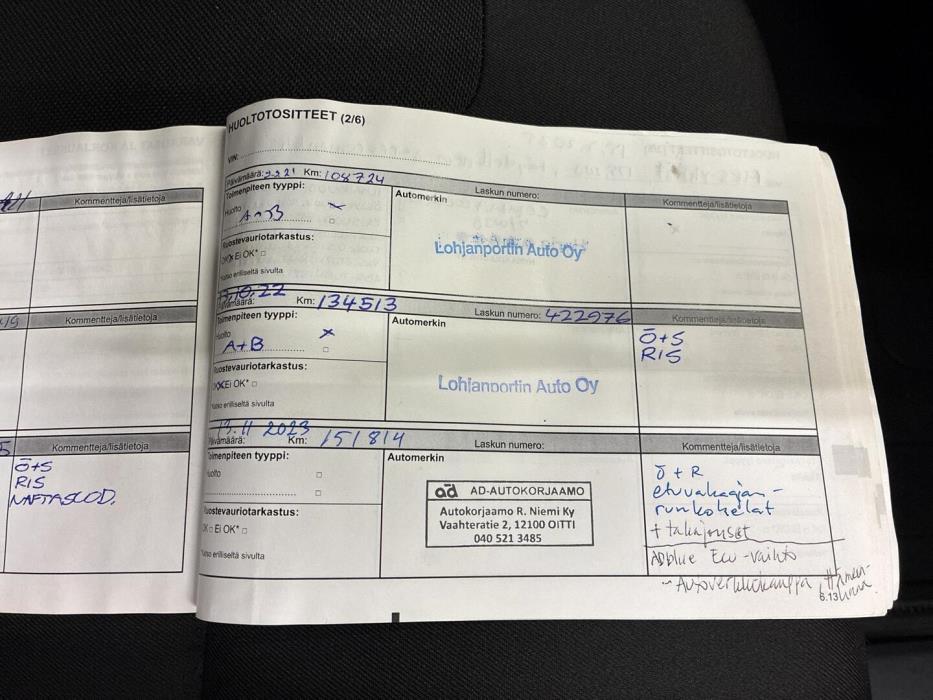 HUOLTOTOSITTEET (2/6)
VIN:
Päivämäärä: Km: 108724
Laskun numero:
Kommentteja/lisätietoja
Toimenpiteen tyyppi:
Automerkin
Huolto
A+B
Ruostevauriotarkastus:
OK Ei OK*
Katso erilliseltä sivulta
Lohjanportin Auto Oy
Päivämäärä: Km: 134513
Laskun numero: 422976
Kommentteja/lisätietoja
Toimenpiteen tyyppi:
Automerkin
Huolto
A+B
Ruostevauriotarkastus:
OK Ei OK*
Katso erilliseltä sivulta
Lohjanportin Auto Oy
Ö+S
RIS
13.11 2023
Päivämäärä: Km: 151814
Laskun numero:
Kommentteja/lisätietoja
Toimenpiteen tyyppi:
Automerkin
Huolto
Ruostevauriotarkastus:
OK Ei OK*
Katso erilliseltä sivulta
ad AD-AUTOKORJAAMO
Autokorjaamo R. Niemi Ky
Vaahteratie 2, 12100 OITTI
040 521 3485
Ö + R
etuvakaajan-
runkokelat
+ takajouset
Adblue Ecu-vaihto
6.13
Kommentteja/lisätietoja
Kommentteja/lisätietoja
Kommentteja/lisätietoja
Ö+S
RIS